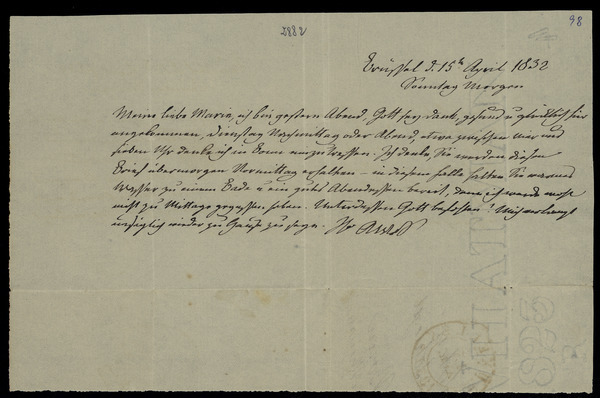 2882
98
Brüssel d. 15t April 1832
Sonntag Morgen
Meine liebe Marie, ich bin gestern Abend, Gott sey dank, gesund u glücklich hier
angekommen, Dienstag Nachmittag oder Abend, etwa zwischen vier und
sieben Uhr denke ich in Bonn einzutreffen. Ich denke, Sie werden diesen
Brief übermorgen Vormittag erhalten – in diesem Falle halten Sie warmes
Wasser zu einem Bade u ein gutes Abendessen bereit, denn ich werde wohl
nicht zu Mittage gegessen haben. Unterdessen Gott befohlen! Mich verlangt
unsäglich wieder zu Hause zu seyn. Ihr AWvS
WHAT